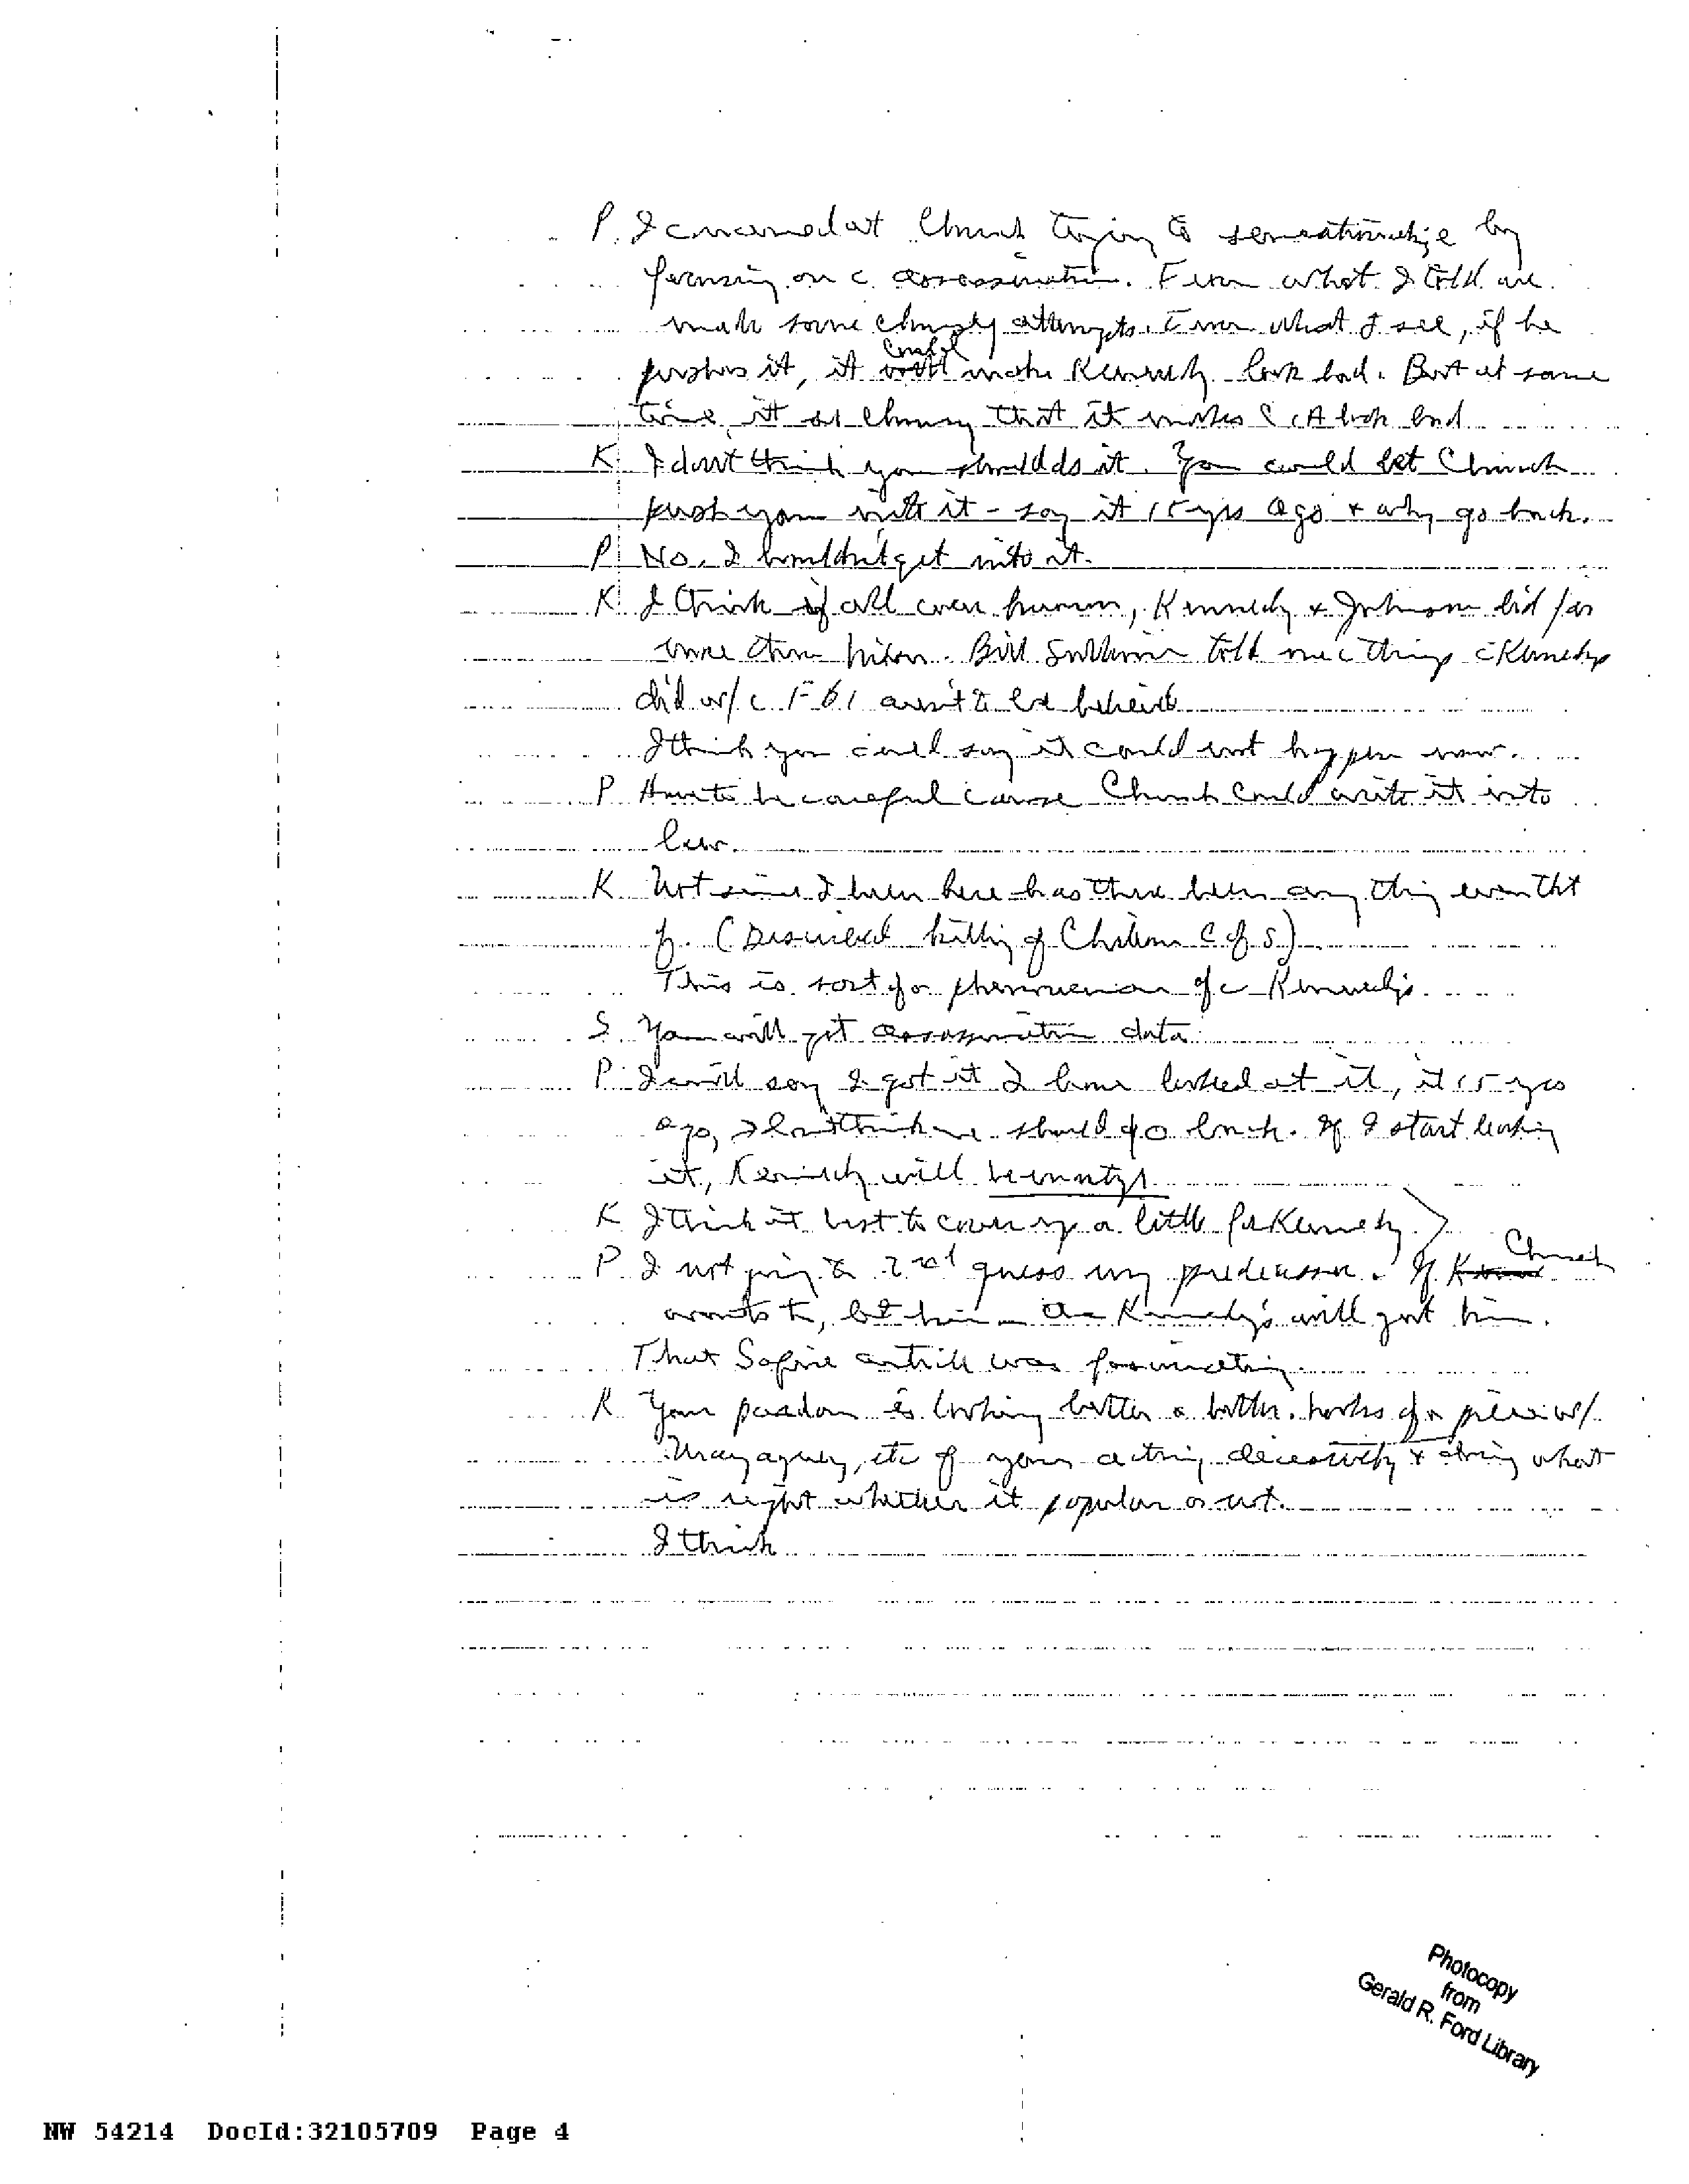 P. I concerned at Church trying to sensationalize by
focusing on c assassination. From what I told we
made some clumsy attempts. From what I see, if he
pushes it, it could make Kennedy look bad. But at same
time, it so clumsy that it makes CIA look bad
K I dont think you should do it. You could let Church
push you into it - say it 15 yrs ago + why go back.
P No. I wouldnt get into it.
K I think if all were known, Kennedy + Johnson did far
more than Nixon. Bill Sullivan told me c things c Kennedys
did w/ c FBI arent to be believed
I think you could say it could not happen now.
P Have to be careful cause Church could write it into
law.
K Not since I been here has there been any thing even tht
of. (Discussed killing of Chilean C of S)
This is sort of a phenomenon of c Kennedys.
S You will get assassination data
P I will say I got it I have looked at it, it 15 yrs
ago, I don't think we should go back. If I start leaking
it, Kennedy will be nuts
K I think it best to cover up a little for Kennedy.
P I not going to 2nd guess my predecessor. If Church
wants to, let him – the Kennedy's will get him.
That Safire article was fascinating.
K Your pardon is looking better & better. looks of a piece w/
Mayaguez, etc of your acting decisively + doing what
is right whether it popular or not.
I think
Photocopy
from
Gerald R. Ford Library
NW 54214 DocId:32105709 Page 4